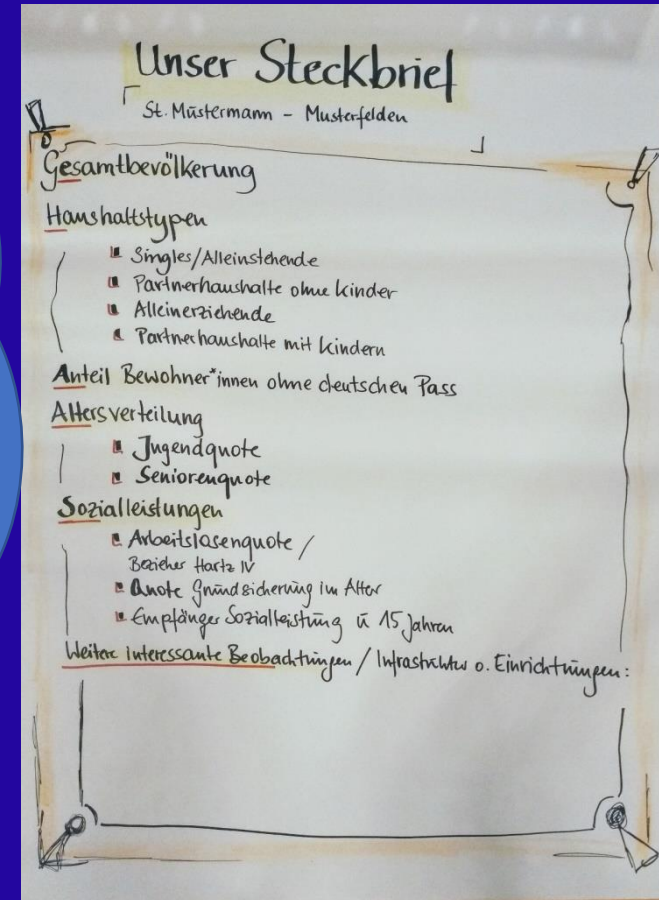 Unser Steckbrief
St. Mustermann - Musterfelden
Gesamtbevölkerung
Haushaltstypen
Singles/Alleinstehende
Partnerhaushalte ohne Kinder
Alleinerziehende
Partnerhaushalte mit Kindern
Anteil Bewohner*innen ohne deutschen Pass
Altersverteilung
Jugendquote
Seniorenquote
Sozialleistungen
Arbeitslosenquote /
Bezieher Hartz IV
Quote Grundsicherung im Alter
Empfänger Sozialleistung ü 15 Jahren
Weitere interessante Beobachtungen / Infrastruktur o. Einrichtungen: